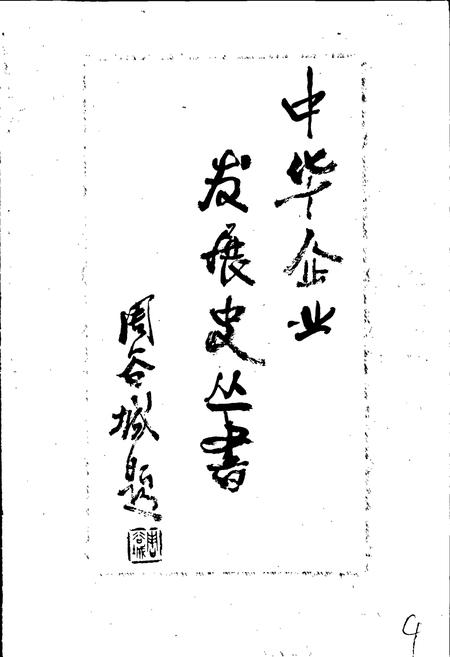 中华企业
发展史丛书
周谷城题
周谷城